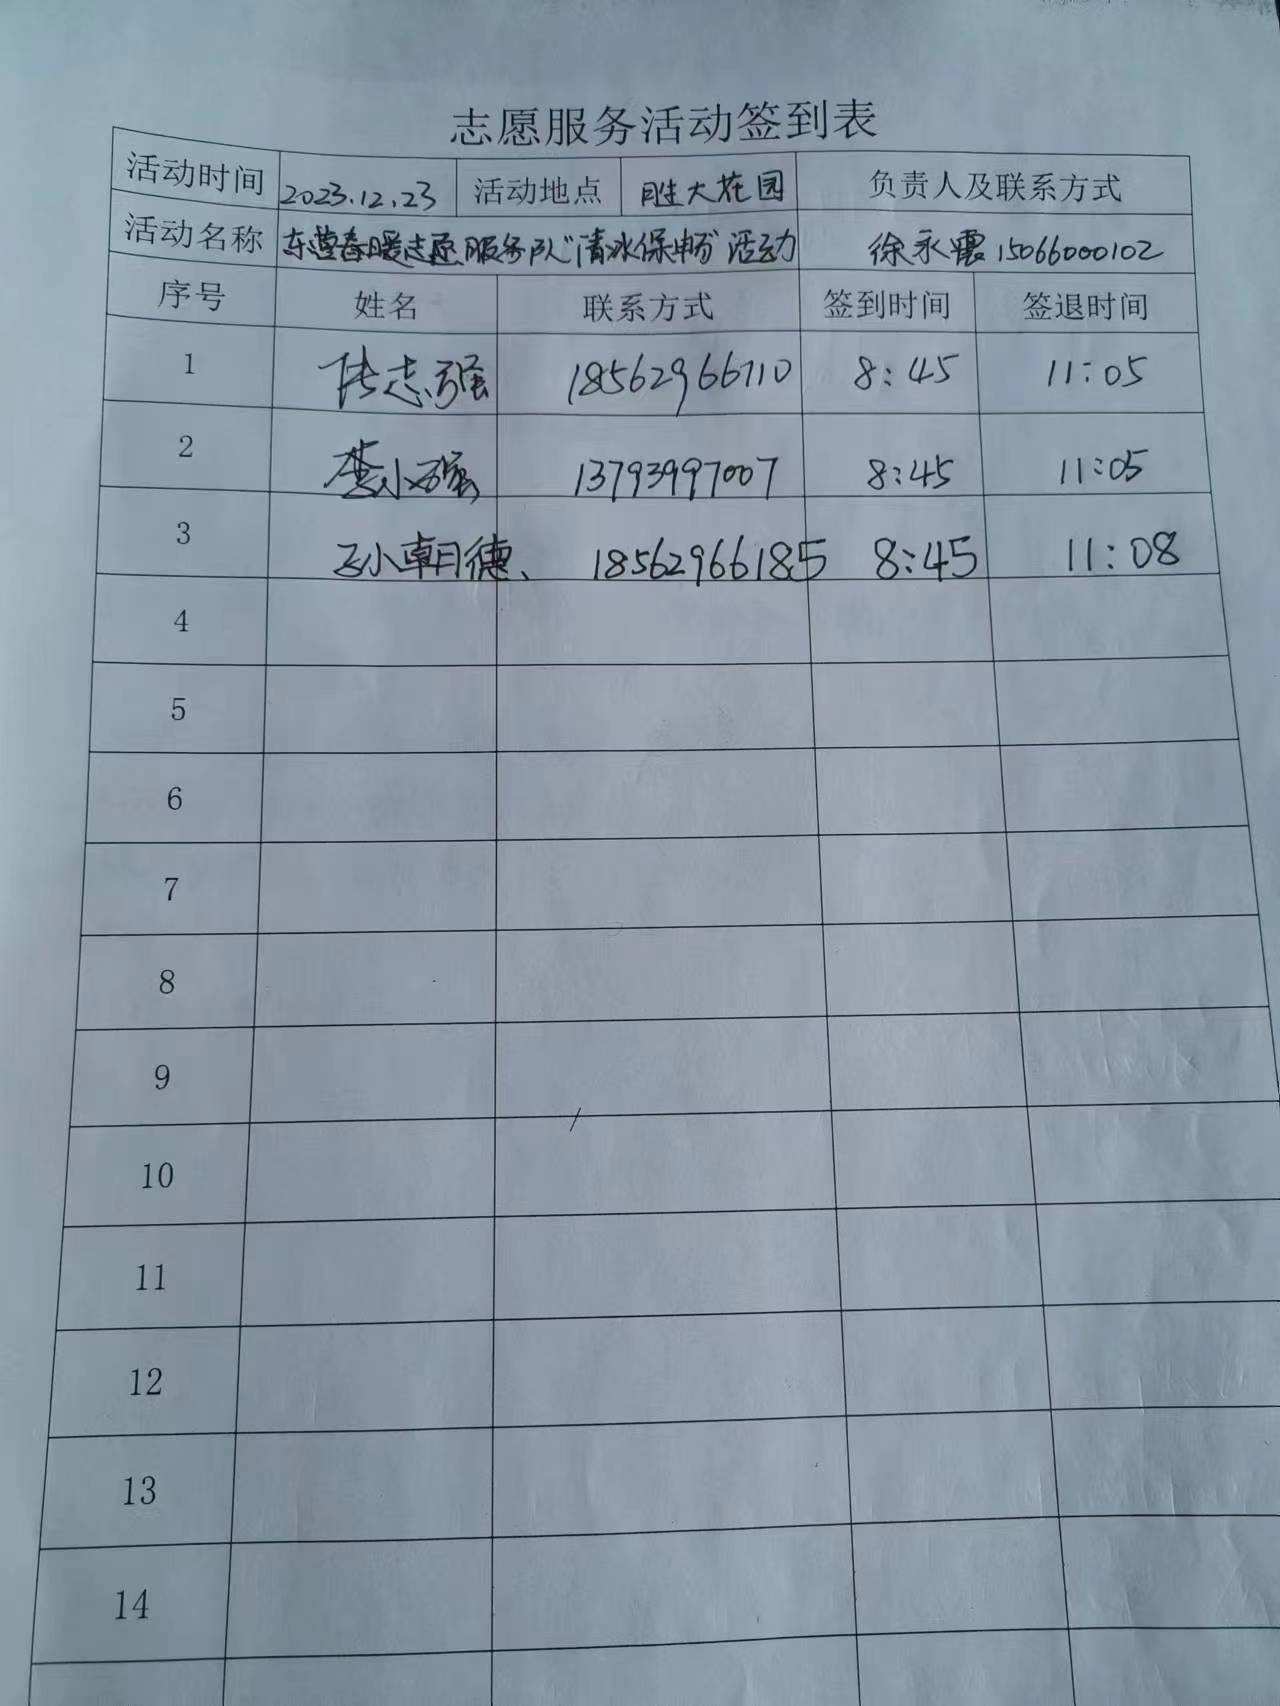 志愿服务活动签到表
活动时间 2023.12.23 活动地点 胜大花园 负责人及联系方式
活动名称 东营春暖志愿服务队“清冰保畅”活动 徐永震 15066000102
序号 姓名 联系方式 签到时间 签退时间
1 张志强 18562966710 8:45 11:05
2 李小强 13793997007 8:45 11:05
3 孙朝德、 18562966185 8:45 11:08
4
5
6
7
8
9
10
11
12
13
14